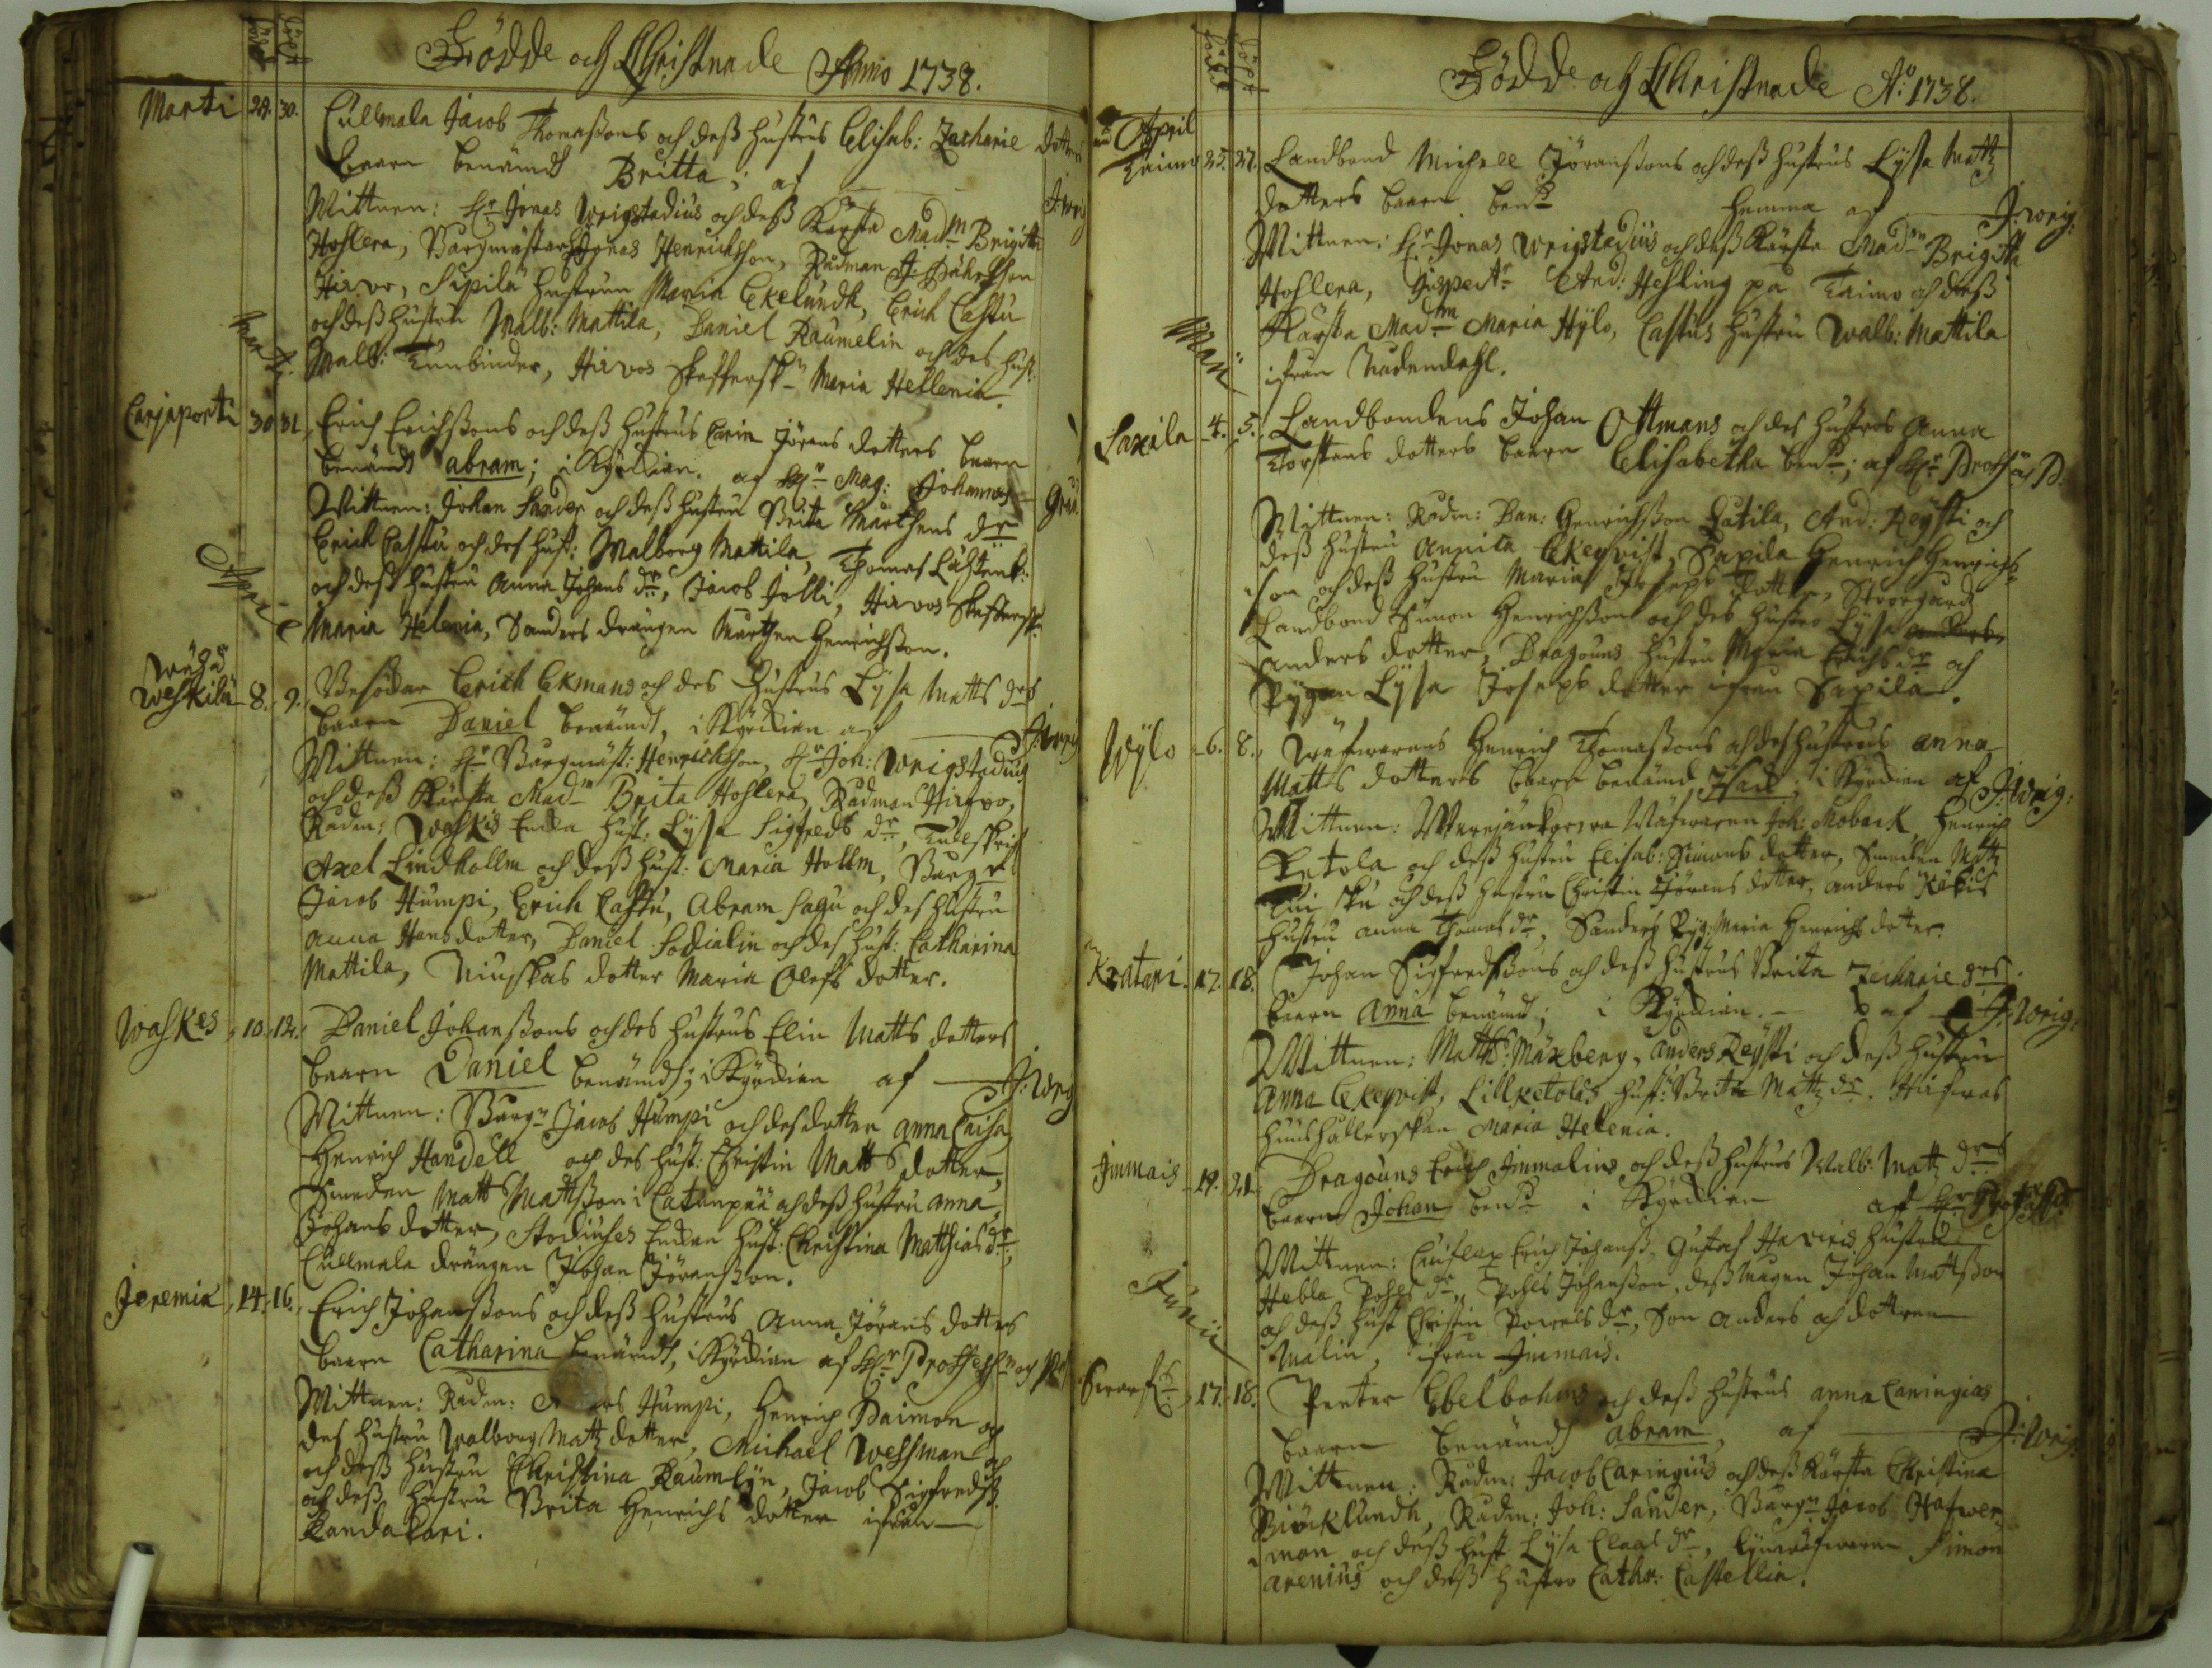 Född döpt
Födde och Christnade Anno 1738.
Marti 28. 30. Cullmala Jacob Thomassons och dess hustrus Elisab: Zacharie dotters
baarn benämdt Britta; af J: Wrig
Wittnen: Hr Jonas Wrigstadius och dess Kärsta Madm Brigitta
Hohlera, Borgmästar Jonas Henrichson, Rådman J:
Hirvo, Sipilä hustrun Maria Ekelundh, Erich Castu
och dess hustru Walb: Mattila, Daniel Raumelin och des hust:
Walb: Tunbinder, Hirvos Maria Hellenia.
Carjaporti 30 31. Erich Erichssons och dess hustrus Carin Jörans dotters baarn
benämdt abram; i Kyrckian. af Hr Mag: Johannes
Wittnen: Johan Sander och dess hustru Brita Marthens dr
Erich Castu och des hust: Walborg Mattila, Thomas
och dess hustru Anna Johans dr, Jacob Jolli, Hirvos
Maria Helenia, Sanders drängen Marthen Henrichsson.
April
Weskilä 8. 9. Besökar Erich Ekmans och des hustrus Lysa Matts drs
baarn Daniel benämdt, i Kyrckian af J: Wrig
Wittnen: Hr Borgmäst: Henrichson, Hr Joh: Wrigstadius
och dess Kärsta Madm Brita Hohlera, Rådman Hirvo,
Rådm: Waskis Encka hust: Lysa Sigfreds dr, Tullskrif
Axel Lindhollm och dess hust: Maria Hollm, Borgr
Jacob Humpi, Erich Castu, Abram Sagu och des hustru
Anna Hans dotter, Daniel Sodialin och des hust: Catharina
Mattila, Niuskas dotter Maria Olofs dotter.
Waskes 10. 12. Daniel Johanssons och des hustrus Elin Matts dotters
baarn Daniel benämdt; i Kyrckian af J: Wrig
Wittnen: Borgn Jacob Humpi och des dotter Anna Caisa
Henrich Handell och des hust: Christin Matts dotter,
Smeden Matts Mattsson i Catanpää och dess hustru Anna
Johans dotter, Stodiuses Enckan hust: Christina Matthias dr,
Cullmala drängen Johan Jöransson.
Jeremia 14. 16. Erich Johanssons och dess hustrus Anna Jörans dotters
baarn Catharina benämdt, i Kyrckian af Hr
Wittnen: Rådm: Humpi, Henrich Daimon och
des hustru Walborg Matz dotter, Michael Wessman
och dess hustru Christina Raumlyn, Jacob Sigfredss:
och dess hustru Brita Henrichs dotter ifrån
Randakari.
Född döpt
Födde och Christnade Ao: 1738.
April
Taimo 25. 27. Landbond Michell Jöranssons och dess hustrus Lysa Mattz
dotters baarn bend hemma af J: Wrig:
Wittnen: Hr Jonas Wrigstadius och dess Kärsta Madm Brigitta
Hohlera, Inspectr And: Hesling på Taimo och dess
Kärsta Madm Maria Hylo, Castus hustru Walb: Mattila
ifrån Nådendahl.
Maii
Saxila 4. 5. Landbondens Johan Ottmans och des hustros Anna
Torstens dotters baarn Elisabetha bend; af Hr
Wittnen: Rådm: Dan: Henrichsson Latila, And: Reyssti och
dess hustru Annika Ekeqvist, Saxila Henrich Henrichs
son och dess hustru Maria Joseps dotter,
Landbond Simon Henrichsson och des hustro Lysa
Anders dotter, Dragouns hustru Maria Erichs dr och
Pygan Lysa Joseps dotter ifrån Saxila.
Wylo 6. 8. Wäfwarens Henrich Thomassons och des hustrus Anna
Matts dotters baarn benämd i Kyrckian af J: Wrig:
Wittnen: Wäfwaren Joh: Moback, Henrich
Ketola och dess hustru Elisab: Simons dotter, Smeden Matz
och dess hustru Christin Jörans dotter, Anders
hustru Anna Thomas dr, Sanders Pyg: Maria Henrichs dotter.
Kratari 17. 18. Johan Sigfredssons och dess hustrus Brita Zacharie drs
baarn Anna benämdt; i Kyrckian. af J: Wrig:
Wittnen: Matts: Mäxberg, Anders Reyssti och dess hustru
Anna Ekeqvist, Lillketolas hust: Brita Matz dr. Hirfwas
huushållerskan Maria Helenia.
Immais 19. 21. Dragouns Erich Immalins och dess hustrus Walb: Matz drs
baarn Johan bend i Kyrckian af Hr
Wittnen: Erich Johanss, Gustaf Haveris hustru
Hebla Pohls dr, Pohls Johansson, dess mågen Johan Mattsson
och dess hust Christin Powels dr, Son Anders och dottren
Malin, ifrån Immais.
Junii
17. 18. Petter Ebelbohms och dess hustrus Anna Caringias
baarn benämdt abram, af J: Wrig:
Wittnen: Rådm: Jacob Caringius och dess Kärsta Christina
Biörcklundh, Rådm: Joh: Sander, Borgn Jacob Hafwer
man och dess hust Lysa Claas dr, Simon
Arenius och dess hustro Cathr: Castellin.